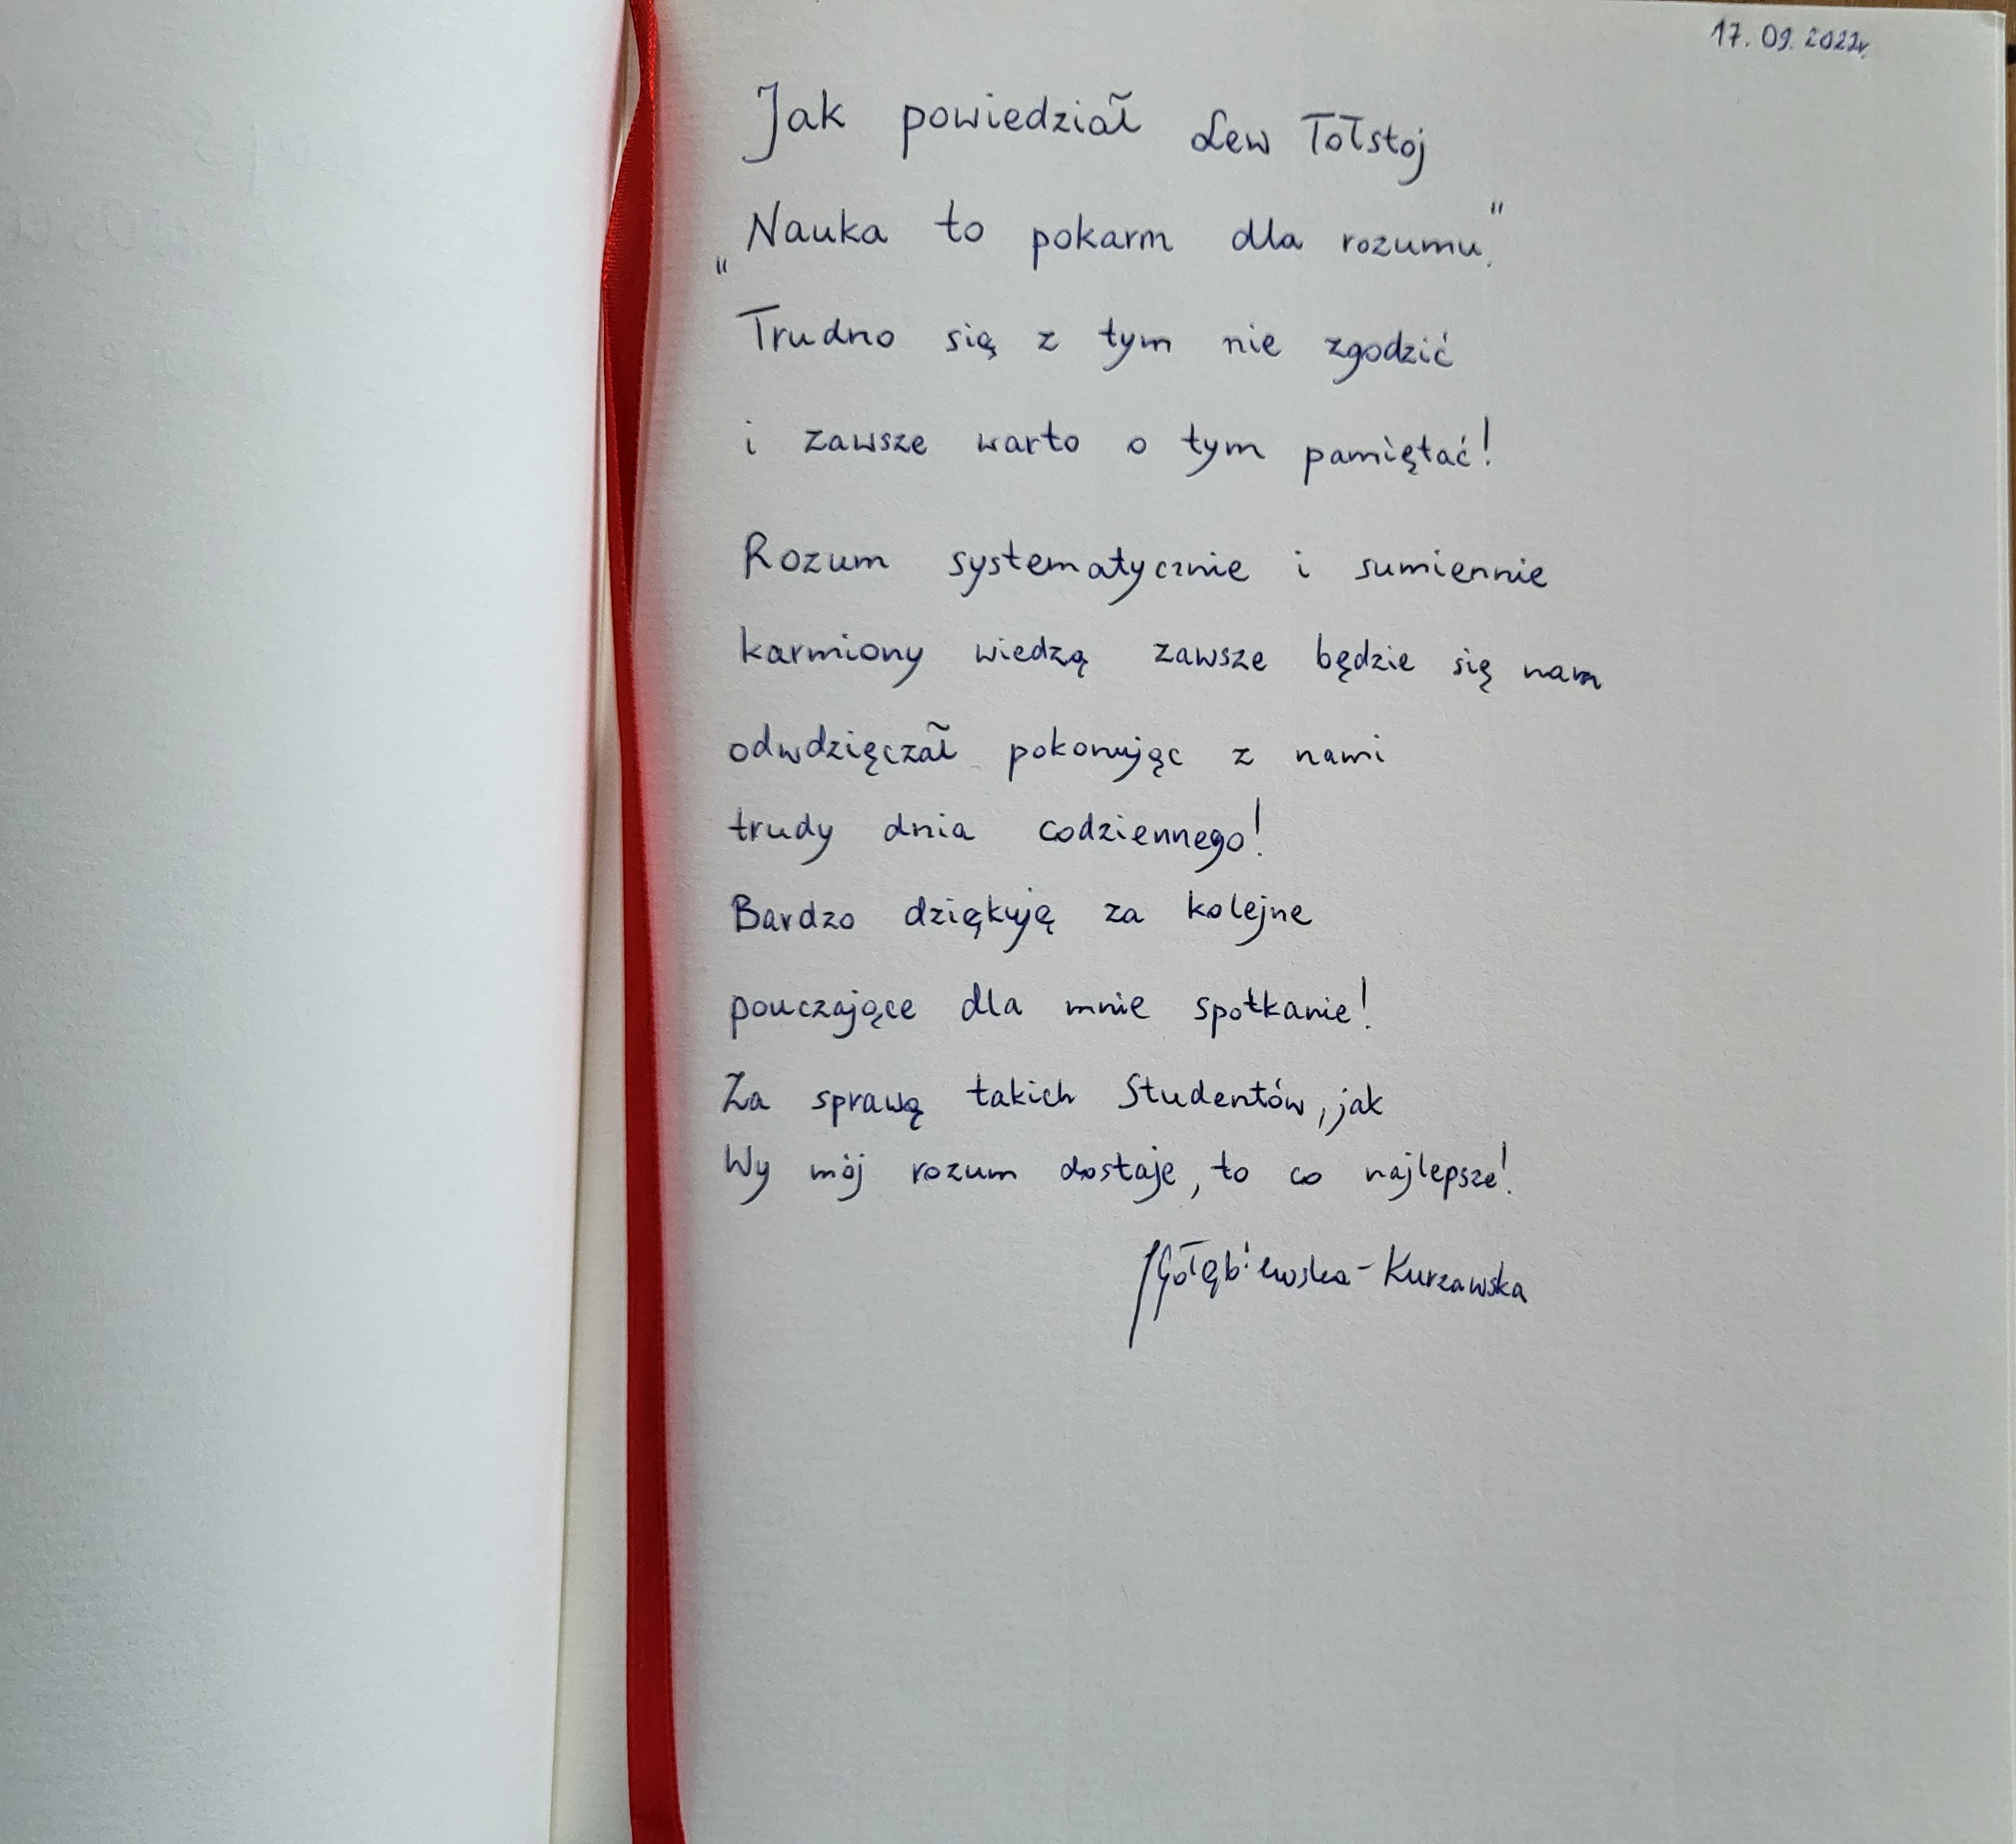 17.09.2022r.
Jak powiedział Lew Tołstoj
„Nauka to pokarm dla rozumu."
Trudno się z tym nie zgodzić
i zawsze warto o tym pamiętać!
Rozum systematycznie i sumiennie
karmiony wiedzą zawsze będzie się nam
odwdzięczał pokonując z nami
trudy dnia codziennego!
Bardzo dziękuję za kolejne
pouczające dla mnie spotkanie!
Za sprawą takich Studentów, jak
Wy mój rozum dostaje, to co najlepsze!
Gołębiewska-Kurzawska